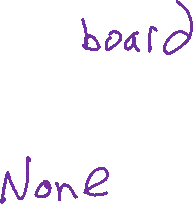 board
None